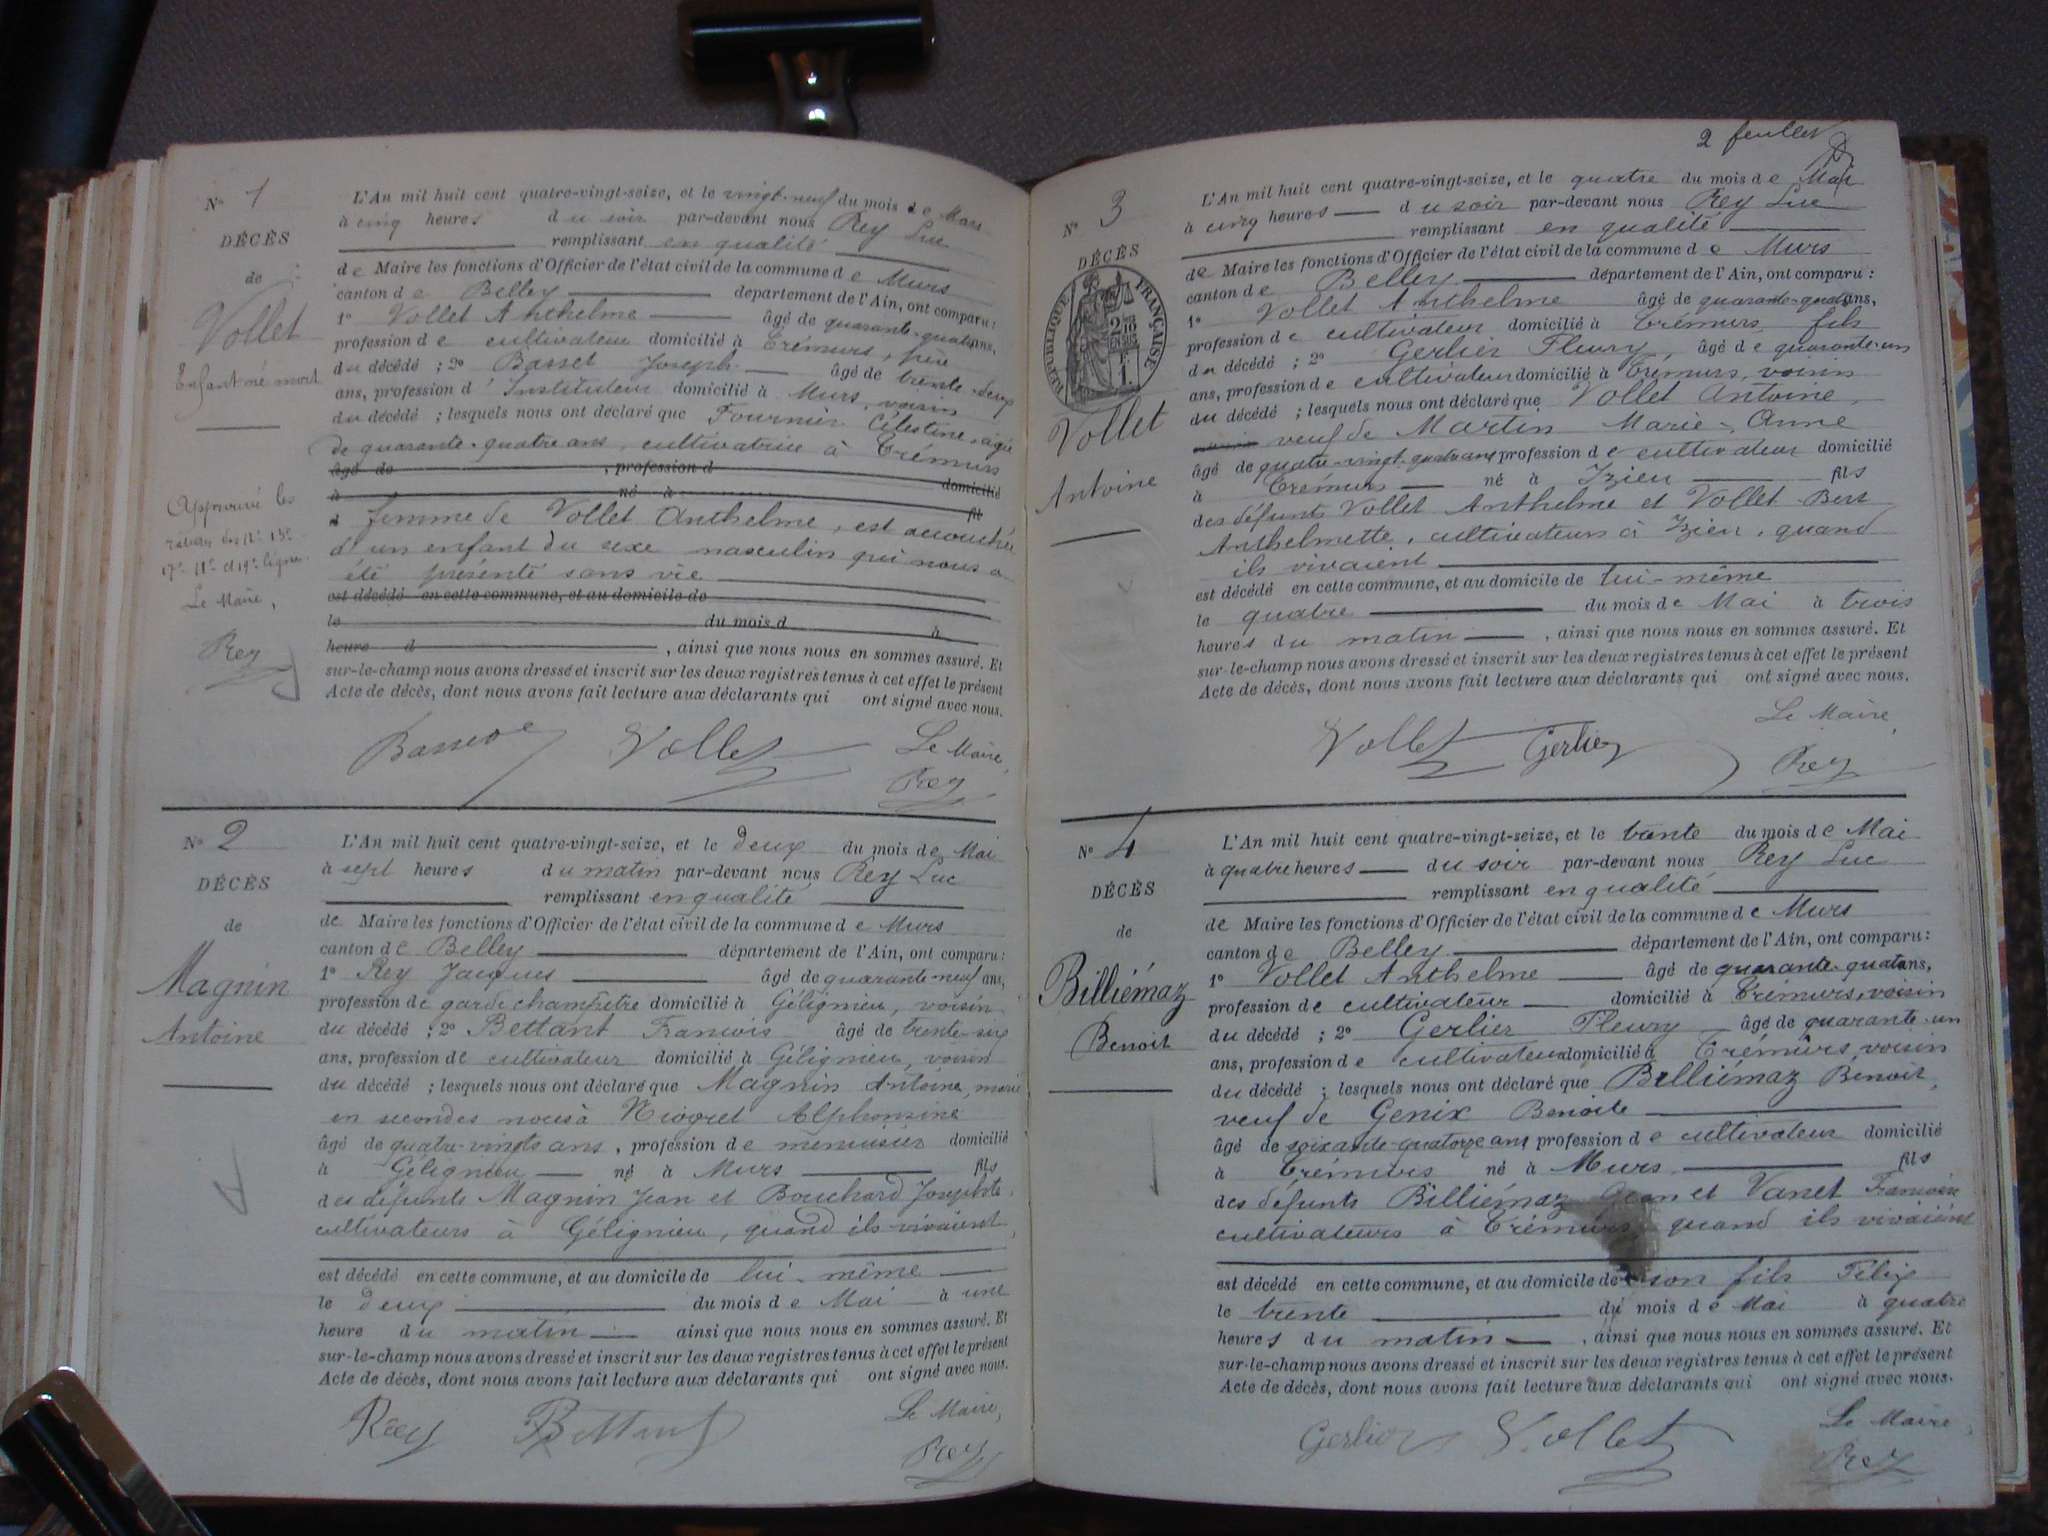 N° 1
DÉCÈS
de
Vollet
Enfant né mort
Approuvé les
Le Maire,
Rey
L'An mil huit cent quatre-vingt-seize, et le vingt-neuf du mois de Mars
à cinq heures du soir par-devant nous Rey Luc
remplissant en qualité
de Maire les fonctions d'Officier de l'état civil de la commune de Murs
canton de Belley département de l'Ain, ont comparu :
1° Vollet Anthelme âgé de quarante-quatre ans,
profession de cultivateur domicilié à Crémurs, père
du décédé ; 2° Basset Joseph âgé de trente-deux
ans, profession d'Instituteur domicilié à Murs, voisin
du décédé ; lesquels nous ont déclaré que Fournier Célestine, âgée
de quarante-quatre ans, cultivatrice à Crémurs
âgé de , profession d
à né à domicilié
fil
d femme de Vollet Anthelme, est accouchée
d'un enfant du sexe masculin qui nous a
été présenté sans vie
est décédé en cette commune, et au domicile de
le du mois d à
heure d , ainsi que nous nous en sommes assuré. Et
sur-le-champ nous avons dressé et inscrit sur les deux registres tenus à cet effet le présent
Acte de décès, dont nous avons fait lecture aux déclarants qui ont signé avec nous.
Vollet Le Maire,
Rey
N° 2
DÉCÈS
de
Magnin
Antoine
L'An mil huit cent quatre-vingt-seize, et le deux du mois de Mai
à sept heures du matin par-devant nous Rey Luc
remplissant en qualité
de Maire les fonctions d'Officier de l'état civil de la commune de Murs
canton de Belley département de l'Ain, ont comparu :
1° Rey Jacques âgé de quarante-neuf ans,
profession de garde champêtre domicilié à Gélignieu, voisin
du décédé ; 2° Bettant François âgé de trente-six
ans, profession de cultivateur domicilié à Gélignieu, voisin
du décédé ; lesquels nous ont déclaré que Magnin Antoine, marié
en secondes noces à Niogret Alphonsine
âgé de quatre-vingts ans, profession de menuisier domicilié
à Gélignieu né à Murs fils
des défunts Magnin Jean et Bouchard Josephte,
cultivateurs à Gélignieu, quand ils vivaient,
est décédé en cette commune, et au domicile de lui-même
le deux du mois de Mai à une
heure du matin ainsi que nous nous en sommes assuré. Et
sur-le-champ nous avons dressé et inscrit sur les deux registres tenus à cet effet le présent
Acte de décès, dont nous avons fait lecture aux déclarants qui ont signé avec nous.
Rey Bettant Le Maire,
Rey
2 feuillet
N° 3
DÉCÈS
RÉPUBLIQUE FRANÇAISE
Vollet
Antoine
L'An mil huit cent quatre-vingt-seize, et le quatre du mois de Mai
à cinq heures du soir par-devant nous Rey Luc
remplissant en qualité
de Maire les fonctions d'Officier de l'état civil de la commune de Murs
canton de Belley département de l'Ain, ont comparu :
1° Vollet Anthelme âgé de quarante-quatre ans,
profession de cultivateur domicilié à Crémurs, fils
du décédé ; 2° Gerlier Fleury, âgé de quarante-un
ans, profession de cultivateur domicilié à Crémurs, voisin
du décédé ; lesquels nous ont déclaré que Vollet Antoine,
veuf de Martin Marie-Anne
âgé de quatre-vingt-quatre ans profession de cultivateur domicilié
à Crémurs né à Izieu fils
des défunts Vollet Anthelme et Vollet-Bert
Anthelmette, cultivateurs à Izieu, quand
ils vivaient
est décédé en cette commune, et au domicile de lui-même
le quatre du mois de Mai à trois
heures du matin , ainsi que nous nous en sommes assuré. Et
sur-le-champ nous avons dressé et inscrit sur les deux registres tenus à cet effet le présent
Acte de décès, dont nous avons fait lecture aux déclarants qui ont signé avec nous.
Le Maire,
Vollet Gerlier Rey
N° 4
DÉCÈS
de
Billiémaz
Benoit
L'An mil huit cent quatre-vingt-seize, et le trente du mois de Mai
à quatre heures du soir par-devant nous Rey Luc
remplissant en qualité
de Maire les fonctions d'Officier de l'état civil de la commune de Murs
canton de Belley département de l'Ain, ont comparu :
1° Vollet Anthelme âgé de quarante-quatre ans,
profession de cultivateur domicilié à Crémurs, voisin
du décédé ; 2° Gerlier Fleury âgé de quarante-un
ans, profession de cultivateur domicilié à Crémurs, voisin
du décédé ; lesquels nous ont déclaré que Billiémaz Benoit,
veuf de Genix Benoite
âgé de soixante-quatorze ans, profession de cultivateur domicilié
à Crémurs né à Murs fils
des défunts Billiémaz Jean et Vanet Françoise
cultivateurs à Crémurs, quand ils vivaient
est décédé en cette commune, et au domicile de son fils Félix
le trente du mois de Mai à quatre
heures du matin , ainsi que nous nous en sommes assuré. Et
sur-le-champ nous avons dressé et inscrit sur les deux registres tenus à cet effet le présent
Acte de décès, dont nous avons fait lecture aux déclarants qui ont signé avec nous.
Le Maire,
Gerlier Vollet Rey